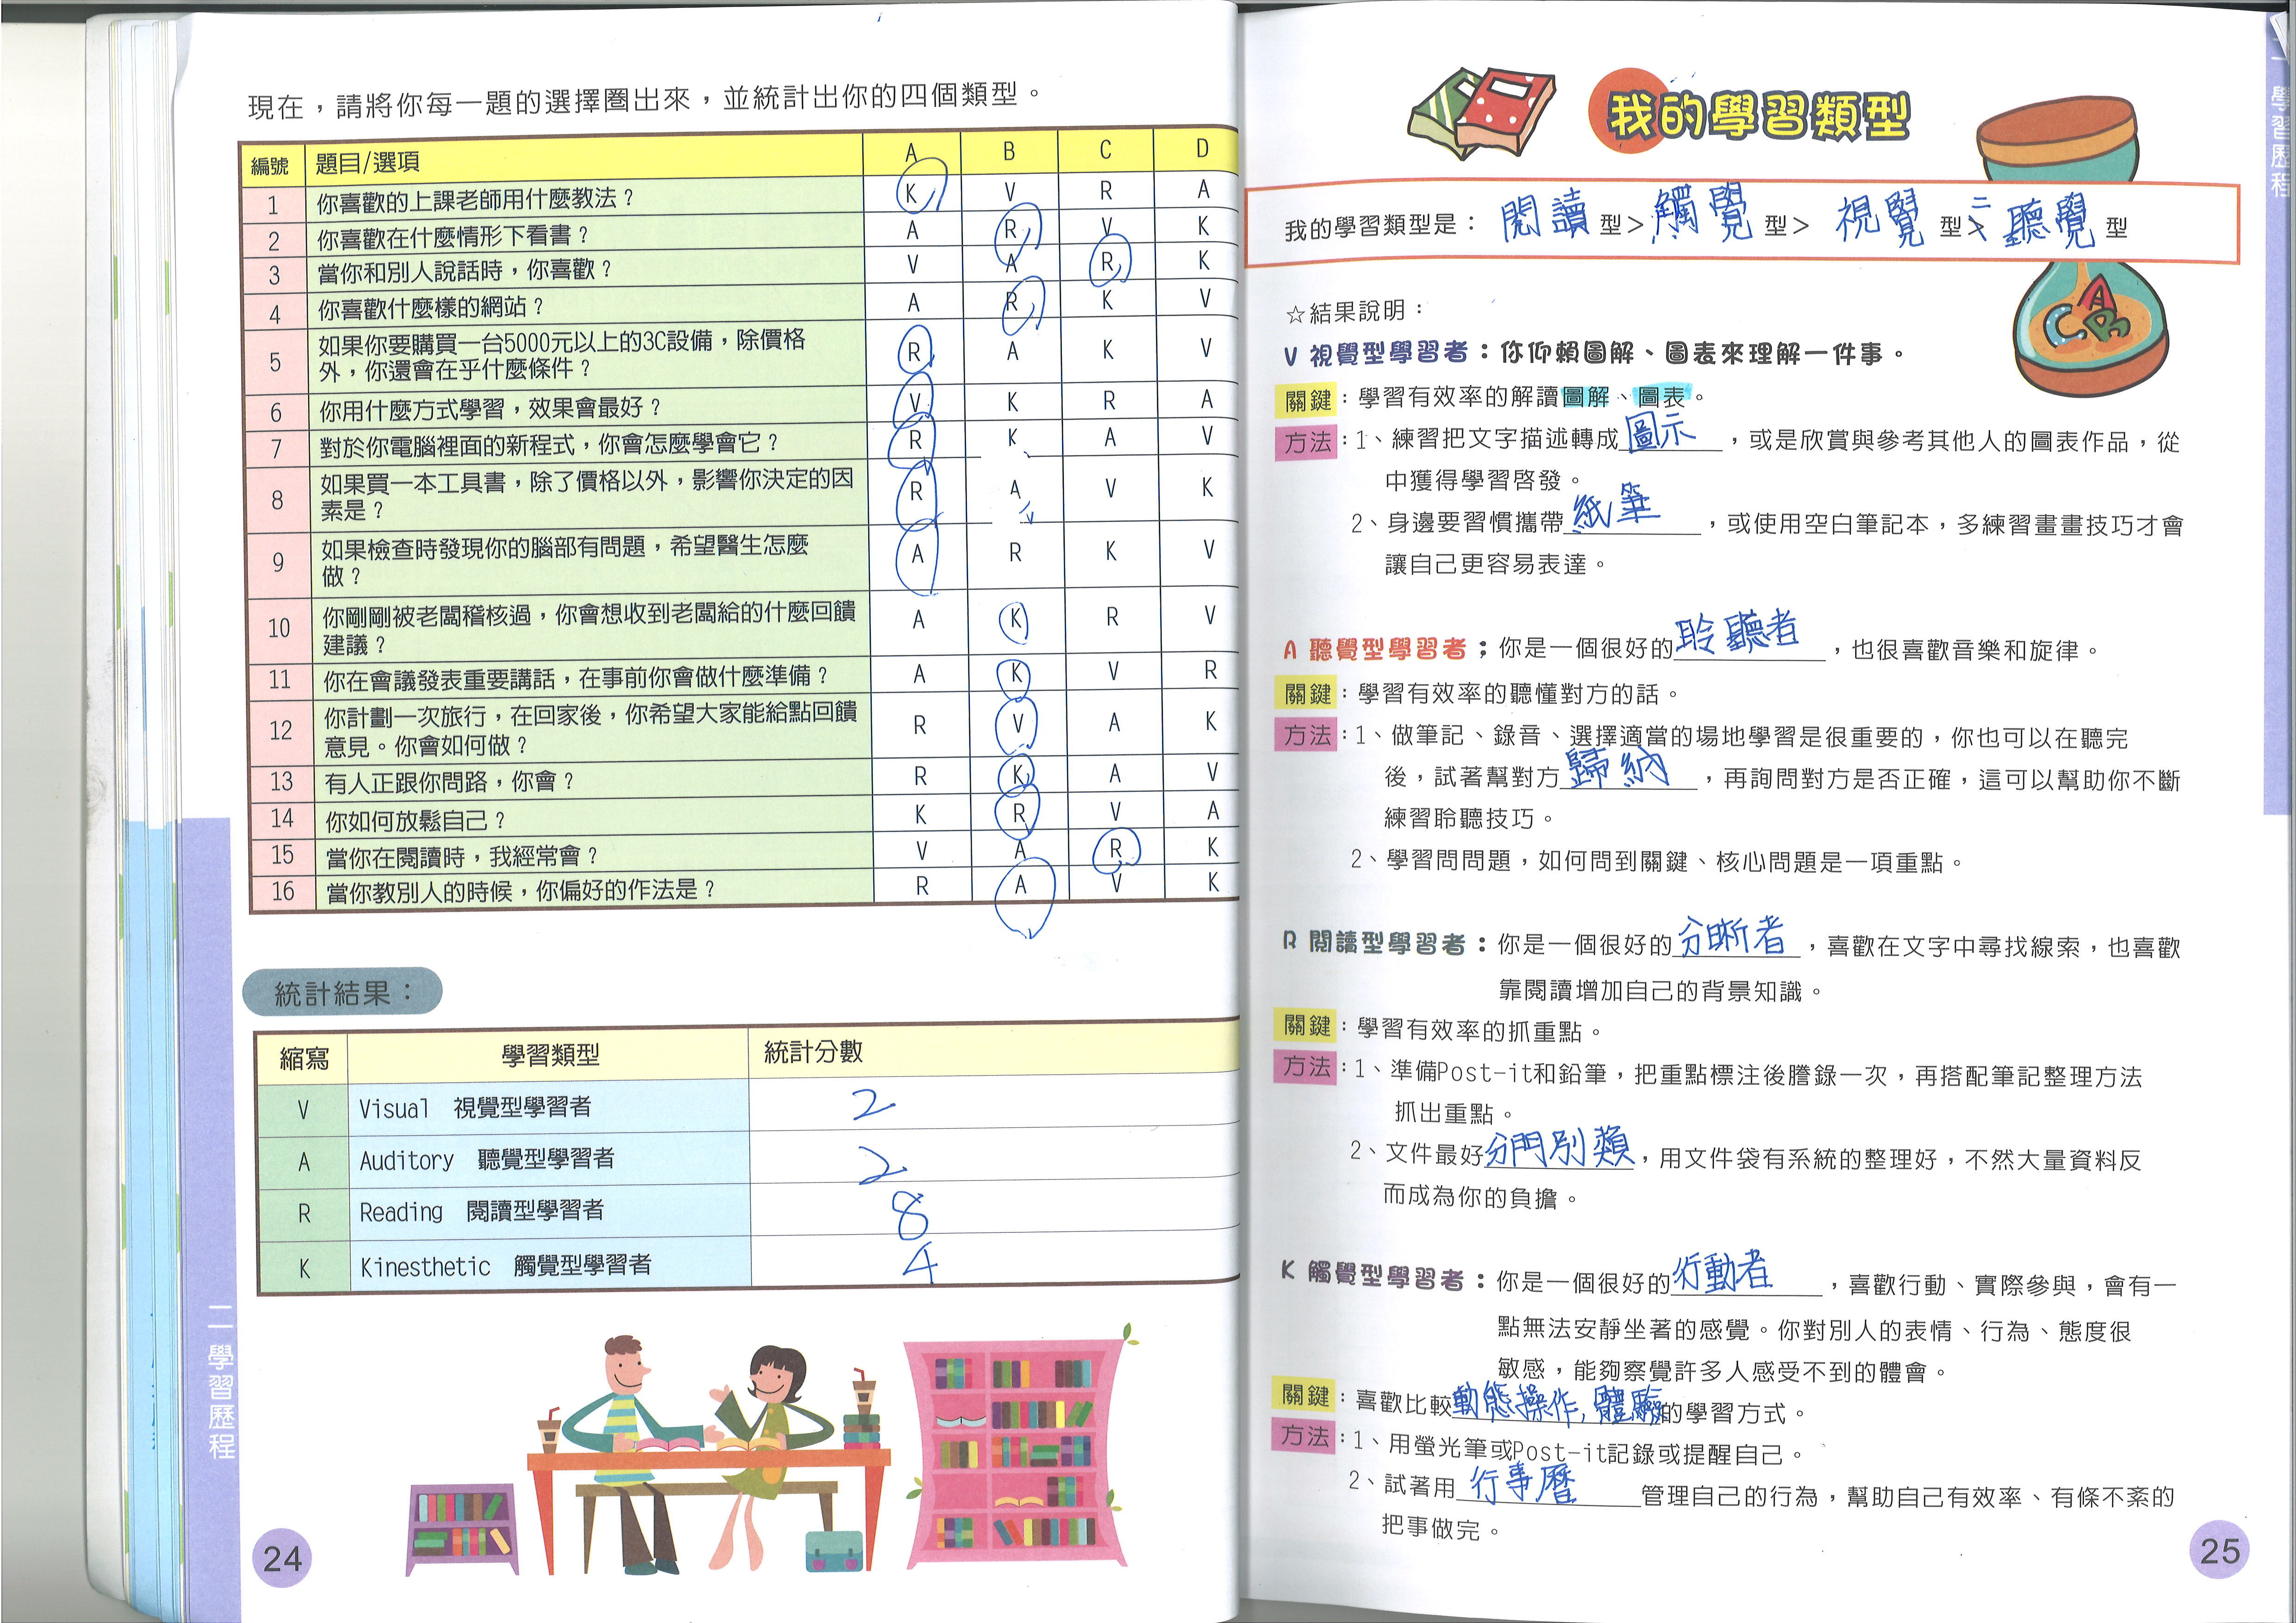 現在，請將你每一題的選擇圈出來，並統計出你的四個類型。
編號 題目/選項 A B C D
1 你喜歡的上課老師用什麼教法？ K V R A
2 你喜歡在什麼情形下看書？ A R V K
3 當你和別人說話時，你喜歡？ V A R K
4 你喜歡什麼樣的網站？ A R K V
5 如果你要購買一台5000元以上的3C設備，除價格
外，你還會在乎什麼條件？ R A K V
6 你用什麼方式學習，效果會最好？ V K R A
7 對於你電腦裡面的新程式，你會怎麼學會它？ R K A V
8 如果買一本工具書，除了價格以外，影響你決定的因
素是？ R A V K
9 如果檢查時發現你的腦部有問題，希望醫生怎麼
做？ A R K V
10 你剛剛被老闆稽核過，你會想收到老闆給的什麼回饋
建議？ A K R V
11 你在會議發表重要講話，在事前你會做什麼準備？ A K V R
12 你計劃一次旅行，在回家後，你希望大家能給點回饋
意見。你會如何做？ R V A K
13 有人正跟你問路，你會？ R K A V
14 你如何放鬆自己？ K R V A
15 當你在閱讀時，我經常會？ V A R K
16 當你教別人的時候，你偏好的作法是？ R A V K
統計結果：
縮寫 學習類型 統計分數
V Visual 視覺型學習者 2
A Auditory 聽覺型學習者 2
R Reading 閱讀型學習者 8
K Kinesthetic 觸覺型學習者 4
二 學習歷程
24
我的學習類型
我的學習類型是：閱讀型>觸覺型>視覺型=聽覺型
☆結果說明：
V 視覺型學習者：你仰賴圖解、圖表來理解一件事。
關鍵：學習有效率的解讀圖解、圖表。
方法：1、練習把文字描述轉成圖示，或是欣賞與參考其他人的圖表作品，從
中獲得學習啓發。
2、身邊要習慣攜帶紙筆，或使用空白筆記本，多練習畫畫技巧才會
讓自己更容易表達。
A 聽覺型學習者；你是一個很好的聆聽者，也很喜歡音樂和旋律。
關鍵：學習有效率的聽懂對方的話。
方法：1、做筆記、錄音、選擇適當的場地學習是很重要的，你也可以在聽完
後，試著幫對方歸納，再詢問對方是否正確，這可以幫助你不斷
練習聆聽技巧。
2、學習問問題，如何問到關鍵、核心問題是一項重點。
R 閱讀型學習者：你是一個很好的分晰者，喜歡在文字中尋找線索，也喜歡
靠閱讀增加自己的背景知識。
關鍵：學習有效率的抓重點。
方法：1、準備Post-it和鉛筆，把重點標注後謄錄一次，再搭配筆記整理方法
抓出重點。
2、文件最好分門別類，用文件袋有系統的整理好，不然大量資料反
而成為你的負擔。
K 觸覺型學習者：你是一個很好的行動者，喜歡行動、實際參與，會有一
點無法安靜坐著的感覺。你對別人的表情、行為、態度很
敏感，能夠察覺許多人感受不到的體會。
關鍵：喜歡比較動態操作,體驗的學習方式。
方法：1、用螢光筆或Post-it記錄或提醒自己。
2、試著用行事曆管理自己的行為，幫助自己有效率、有條不紊的
把事做完。
學習歷程
25